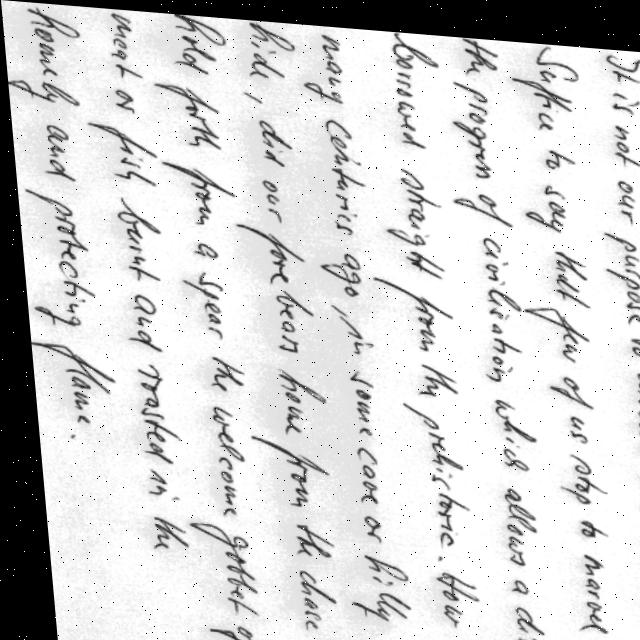 It is not our purpose
Suffice to say that few of us stop to marvel
the progress of civilisation which allows a
borrowed straight from the prehistoric. How
many centuries ago, in some cave or hilly
hide, did our forebears home from the chase
hold forth from a spear the welcome gobbet
meat or fish burnt and roasted in the
homely and protecting flame.